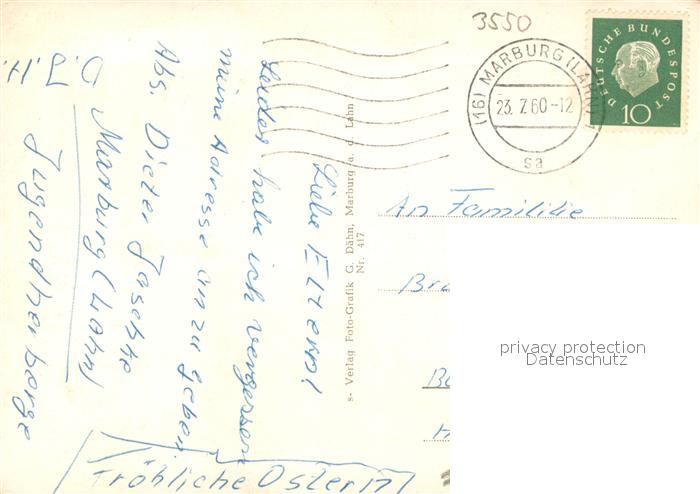 3550
(16) MARBURG (LAHN)
23. 7. 60-12
sa
DEUTSCHE BUNDESPOST
10
Liebe Eltern!
Leider habe ich vergessen
meine Adresse anzugeben
Abs. Dieter
Marburg (Lahn)
D.J.H.
Jugendherberge
Fröhliche Ostern!
s- Verlag Foto-Grafik G. Dähn, Marburg a. d. Lahn
Nr. 417
An Famililie
privacy protection
Datenschutz